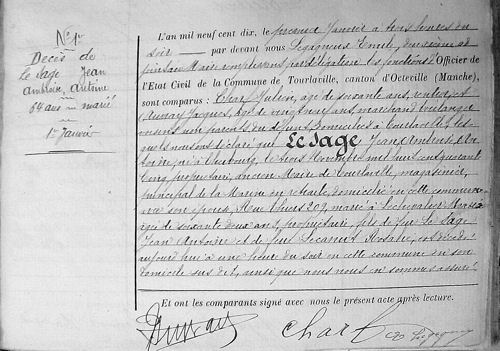 N° 1er
Décès de
Le Sage Jean
Ambroise Antoine
64 ans marié
1er Janvier
L'an mil neuf cent dix, le premier Janvier à trois heures du
soir par devant nous Emile,
Maire remplissant par délégation les fonctions d'Officier de
l'Etat Civil de la Commune de Tourlaville, canton d'Octeville (Manche),
sont comparus : Charf Julien, âgé de soixante ans, rentier, et
Auvray Jacques, âgé de vingt neuf ans, marchand boulanger
voisins non parents du défunt, domiciliés à Tourlaville, les-
quels nous ont déclaré que Le Sage Jean
né à Cherbourg, le trois Novembre mil huit cent quarante
cinq, propriétaire, ancien Maire de Tourlaville, magasinier,
principal de la Marine en retraite, domicilié en cette commune
son épouse, Rue Thiers 209, marié à Lechevalier
âgée de soixante deux ans, propriétaire, fils de feu Le Sage
Jean Antoine et de feue Lecanut Rosalie, est décédé
aujourd'hui à une heure du soir en cette commune en son
domicile sus dit, ainsi que nous nous en sommes assuré.
Et ont les comparants signé avec nous le présent acte après lecture.
Auvray Charf